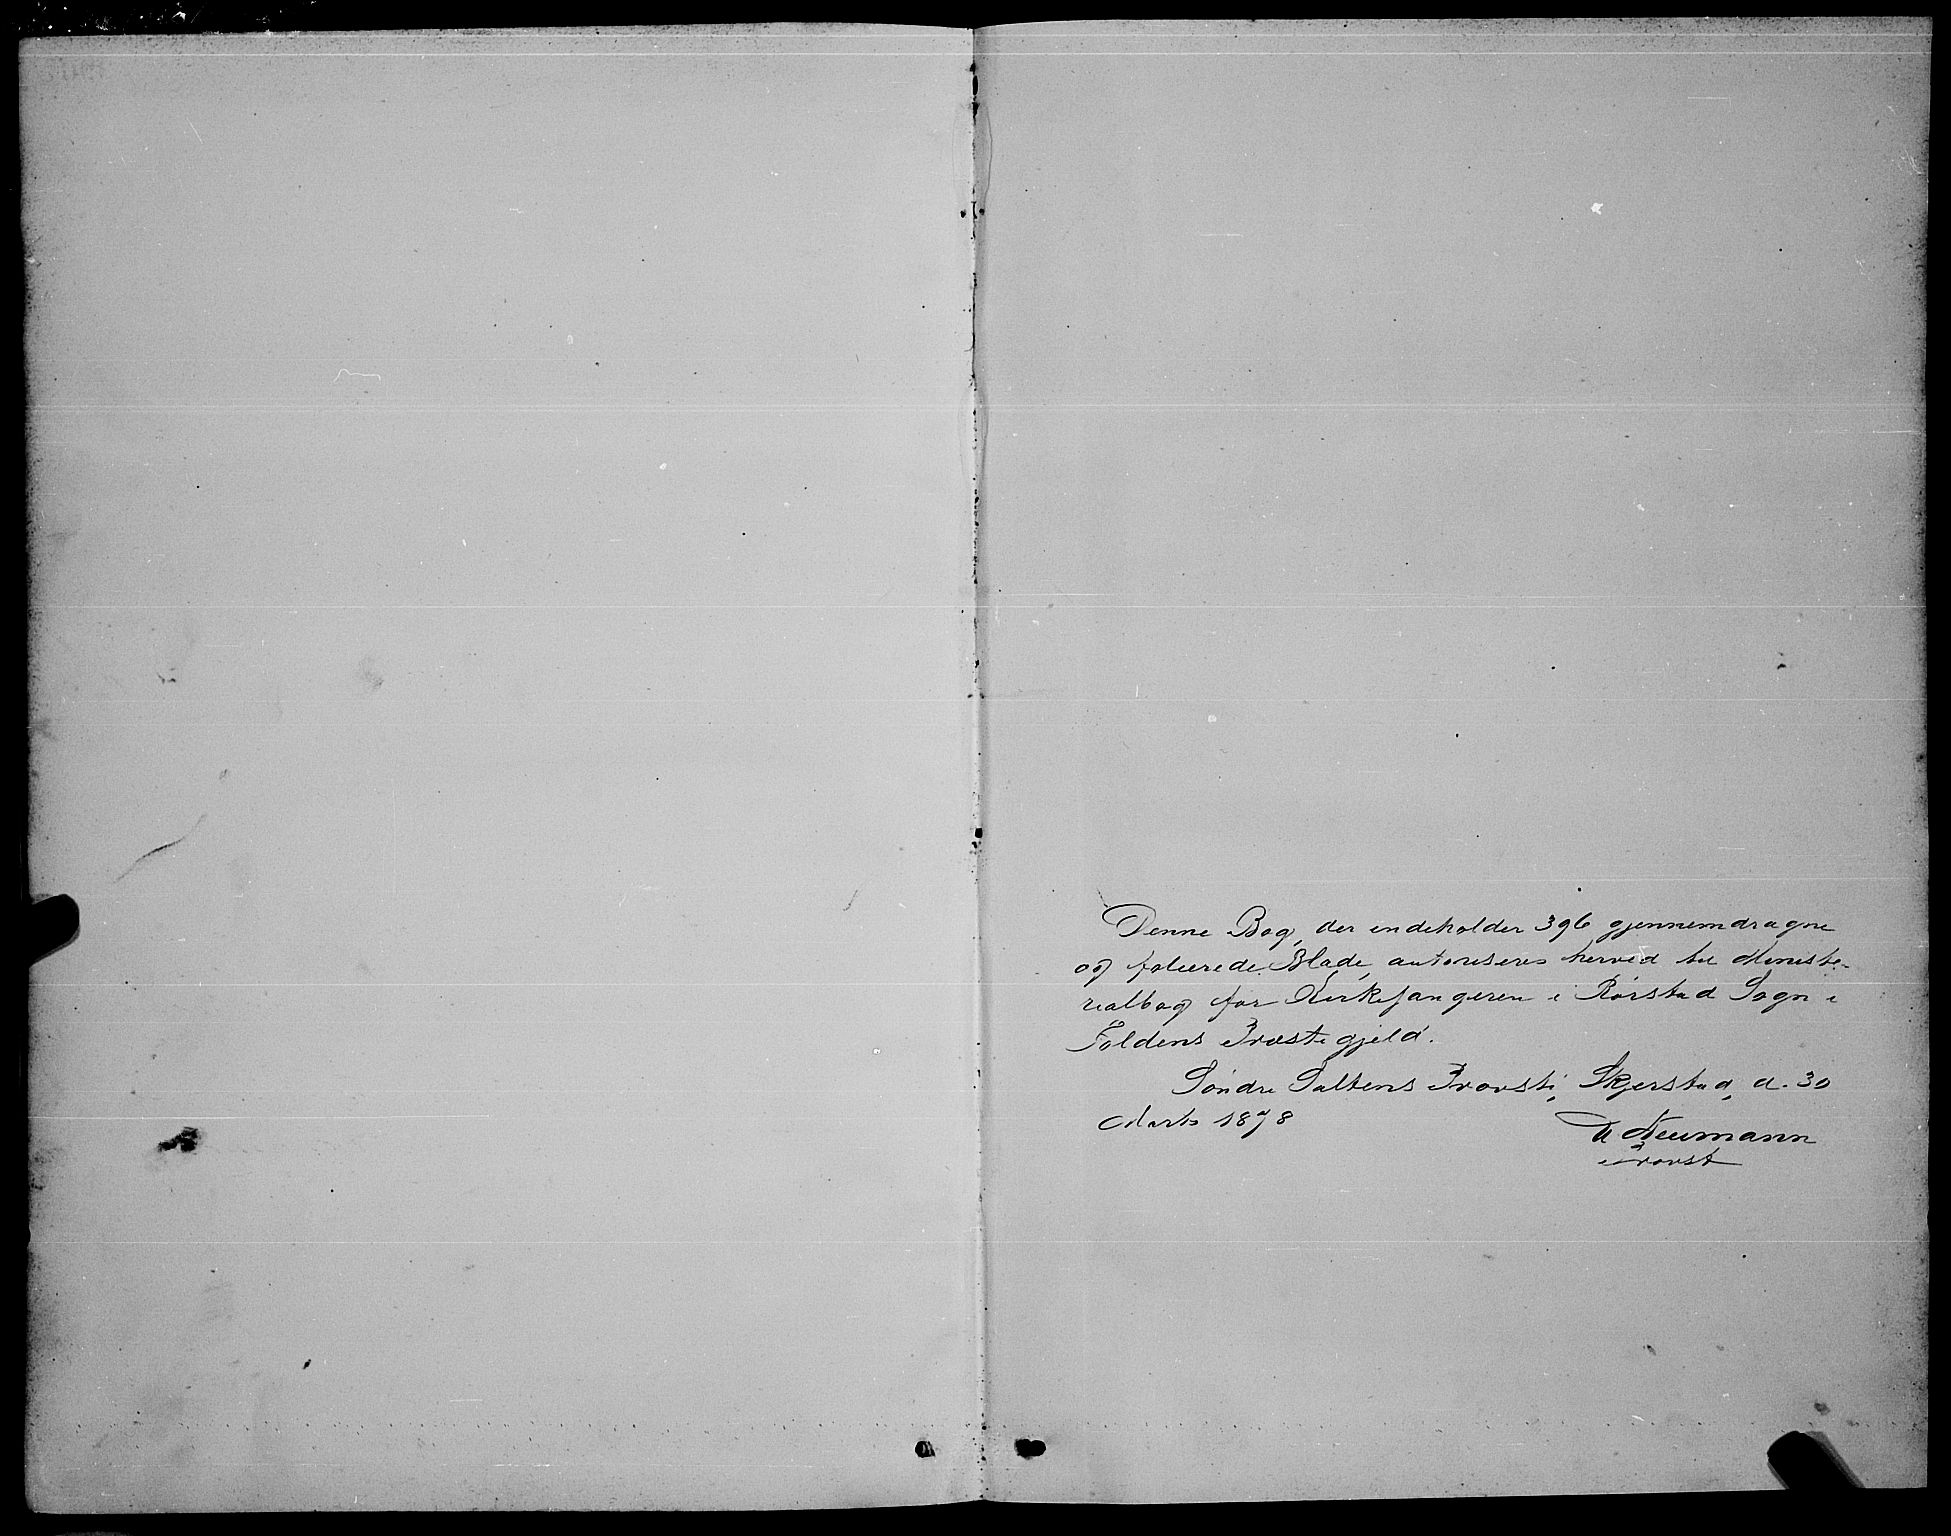 Denne Bog, der indeholder 396 gjennemdragne
og folierede Blade, autoriseres herved til Ministe-
rialbog for Kirkesangeren i Rörstad Sogn i
Foldens Præstegjeld.
Söndre Saltens Provsti, Skjerstad, d. 30
Marts 1878
Neumann
Provst